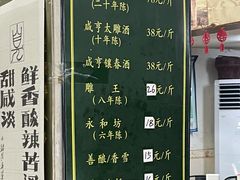 (二十年陈)
咸亨太雕酒 38元/斤
(十年陈)
咸亨镶春酒 38元/斤
雕王 26元/斤
(八年陈)
永和坊 18元/斤
(六年陈)
善酿/香雪 15元/斤
鲜香酸辣苦
甜咸淡